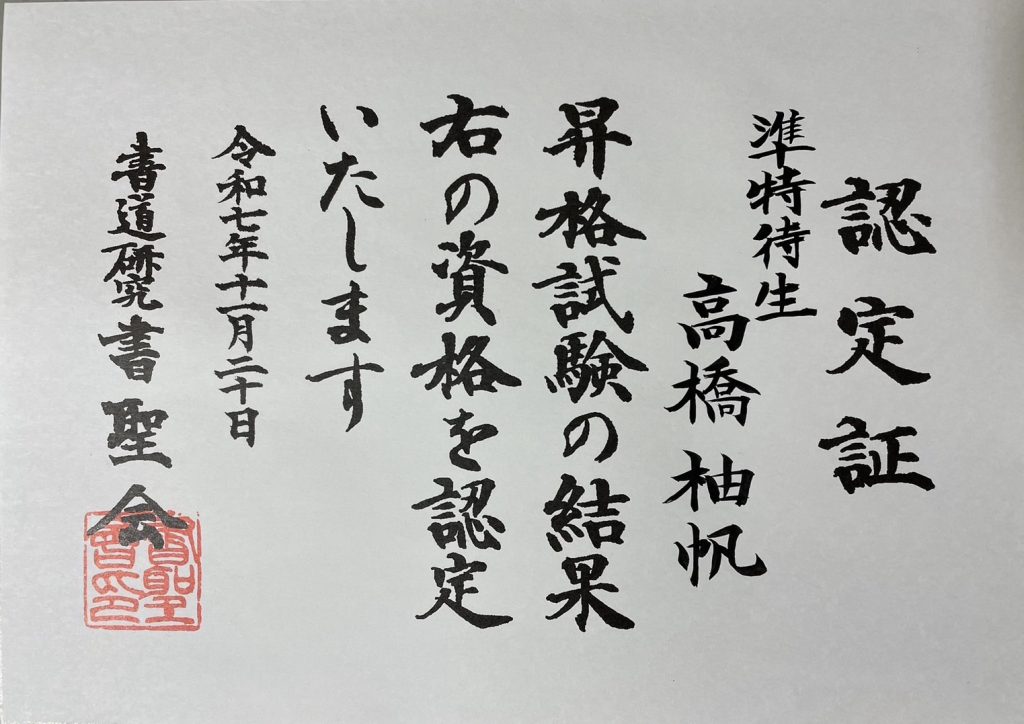 認定証
準特待生
高橋柚帆
昇格試験の結果
右の資格を認定
いたします
令和七年十一月二十日
書道研究書聖会
書聖會印